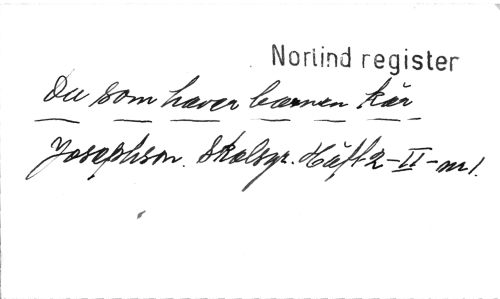 Norlind register
Du som haver barnen kär
Josephson. Skolsgr. Häft 2-II-nr 1.